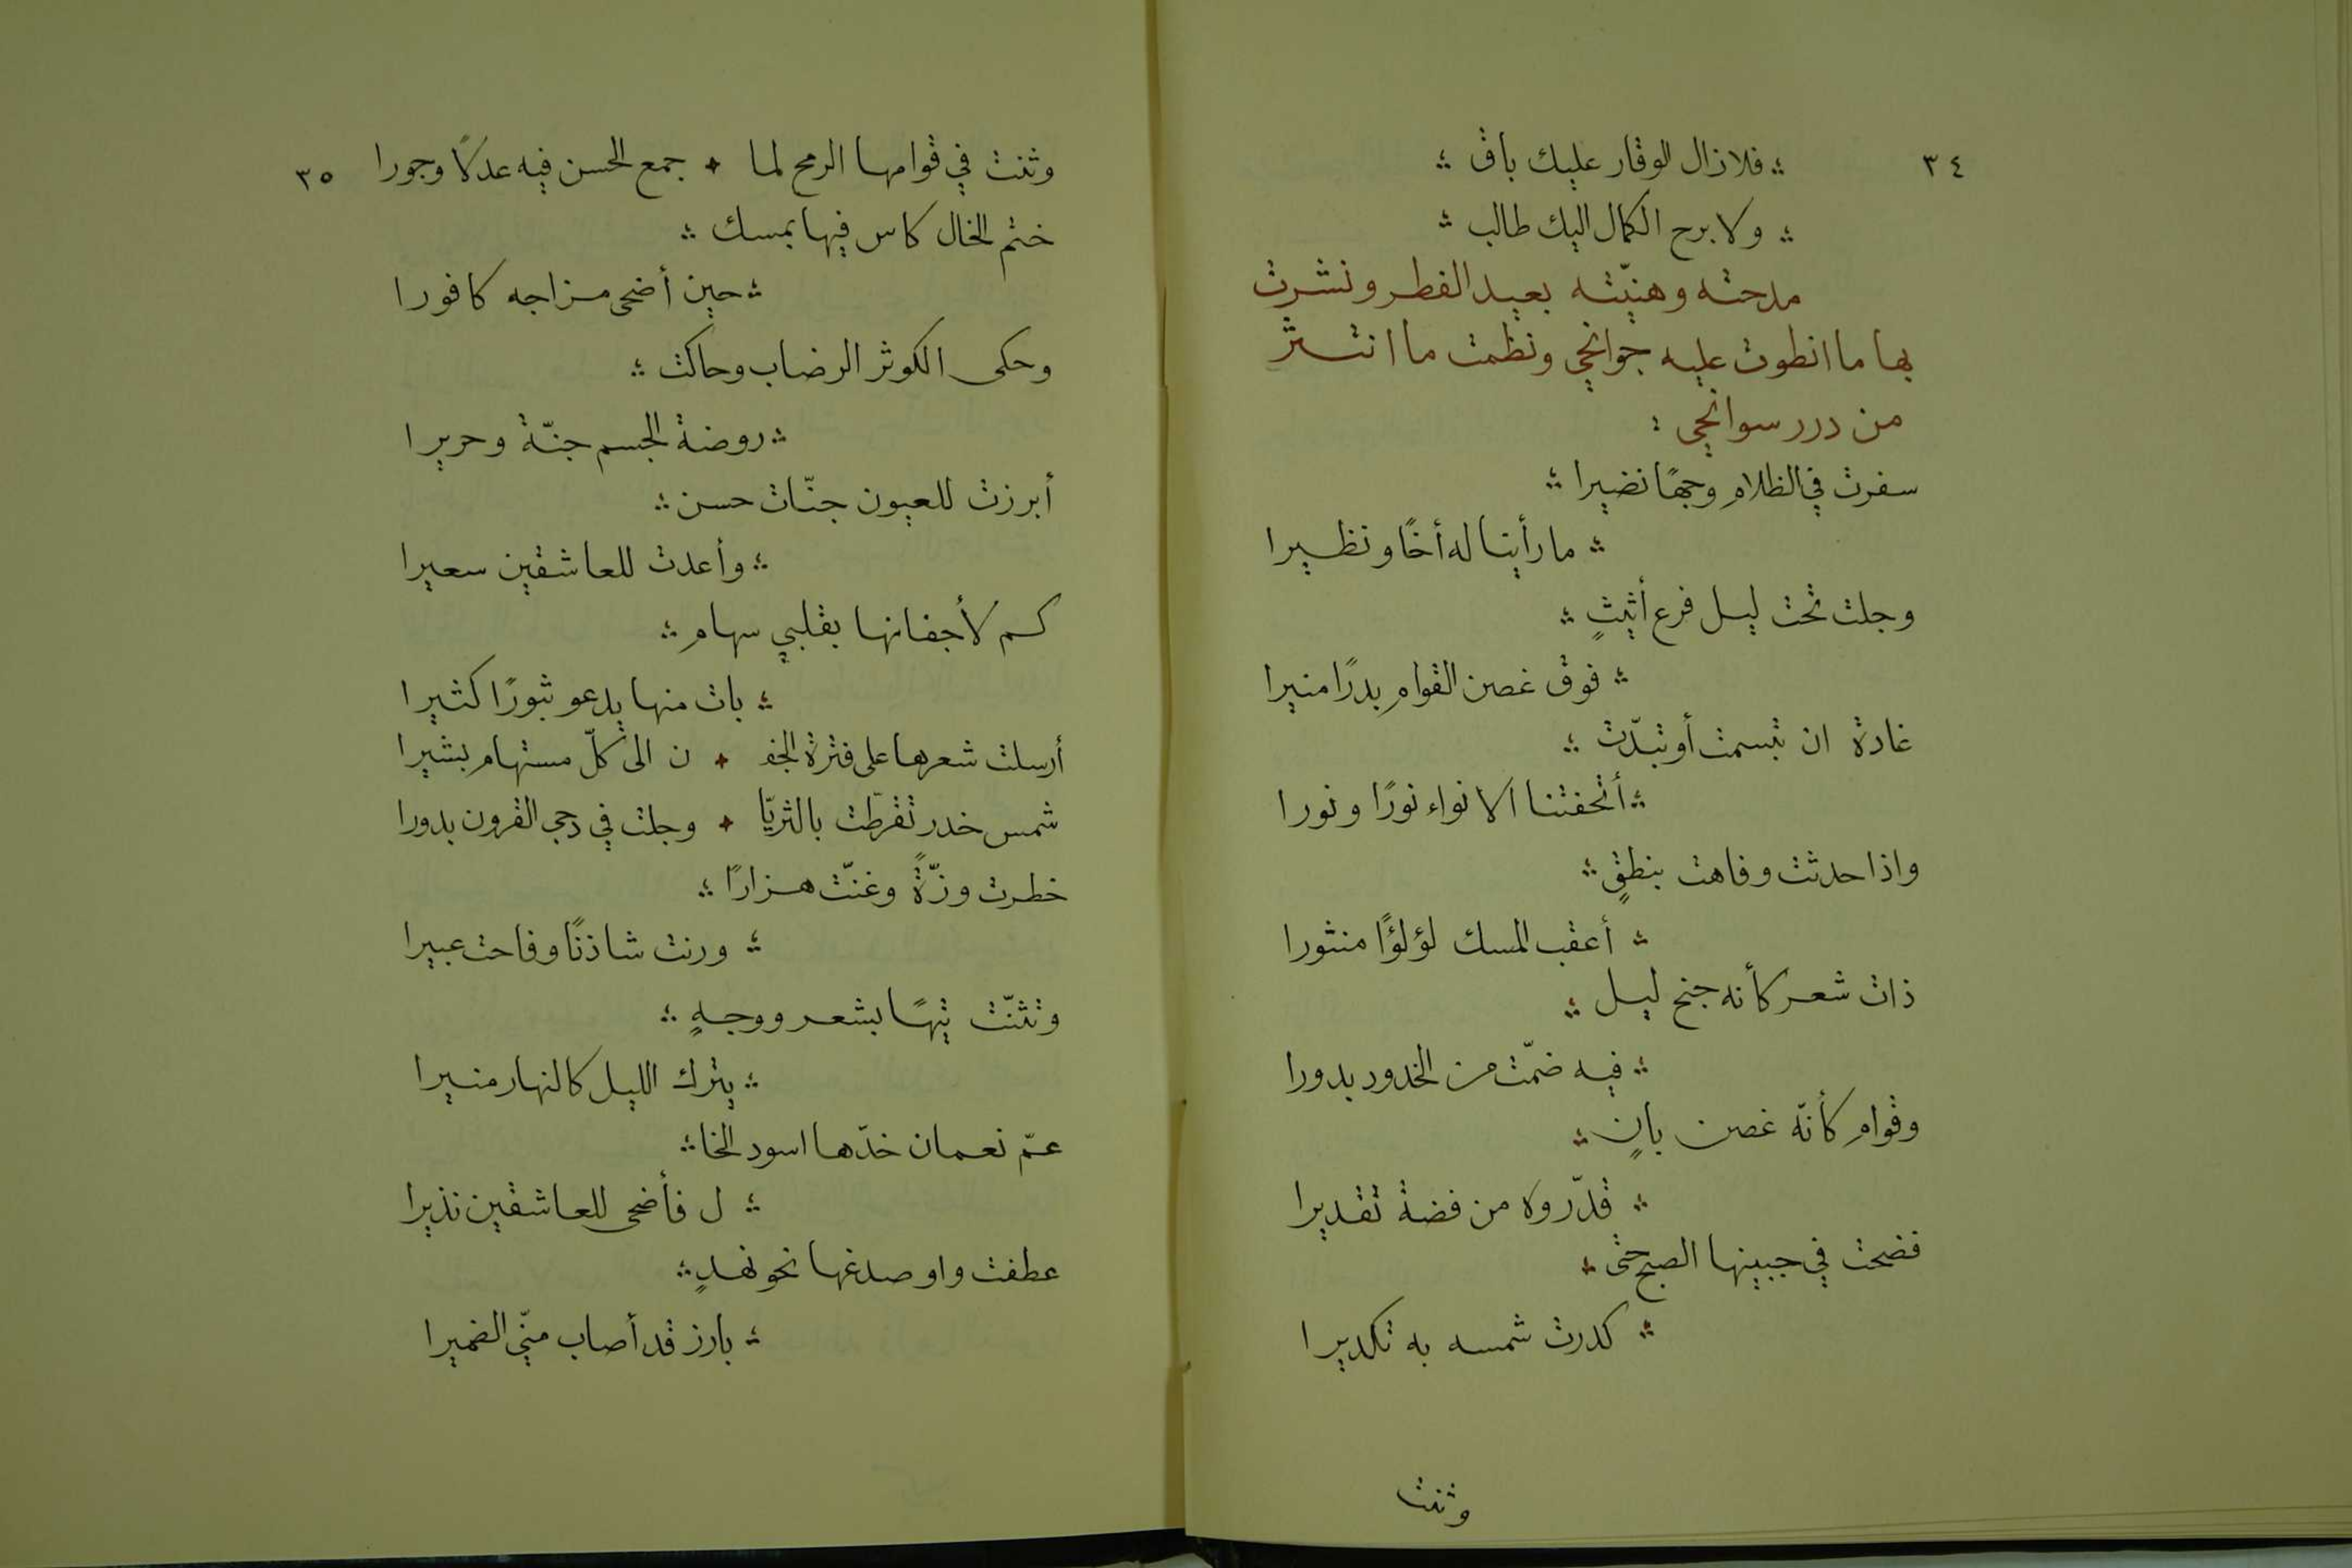 ٣٤
فلا زال الوقار عليك باق
ولا برح الكمال اليك طالب
مدحته وهنيّته بعيد الفطر ونشرت
بها ما انطوت عليه جوانحي ونظمت ما انتثر
من درر سوانحي
سفرت في الظلام وجهًا نضيرا
ما رأينا له أخًا ونظيرا
وجلت تحت ليل فرع أثيثٍ
فوق غصن القوامِ بدرًا منيرا
غادة ان تبسمت أو تبدّت
أتحفتنا الانواء نورًا ونورا
واذا حدثت وفاهت بنطقٍ
أعقب المسك لؤلؤًا منثورا
ذات شعر كأنه جنح ليل
فيه ضمّت من الخدود بدورا
وقوامِ كأنّه غصن بانٍ
قدّروه من فضة تقديرا
فضحت في جبينها الصبح حتى
كدرت شمسه به تكديرا
وثنت
٣٥
وثنت في قوامها الرمح لما جمع الحسن فيه عدلًا وجورا
ختم الخال كاس فيها بمسك
حين أضحى مزاجه كافورا
وحكى الكوثر الرضاب وحاكت
روضة الجسم جنّة وحريرا
أبرزت للعيون جنّات حسن
وأعدت للعاشقين سعيرا
كم لأجفانها بقلبي سهامِ
بات منها يدعو ثبورًا كثيرا
أرسلت شعرها على فترة الجف ن الى كلّ مستهامِ بشيرا
شمس خدر تقرطت بالثريّا وجلت في دجى القرون بدورا
خطرت وزّةً وغنّت هزارًا
ورنت شاذنًا وفاحت عبيرا
وتثنّت تيهًا بشعر ووجهٍ
يترك الليل كالنهار منيرا
عمّ نعمان خدّها اسود الخا
ل فأضحى للعاشقين نذيرا
عطفت واو صدغها نحو نهدٍ
بارز قد أصاب منّي الضميرا